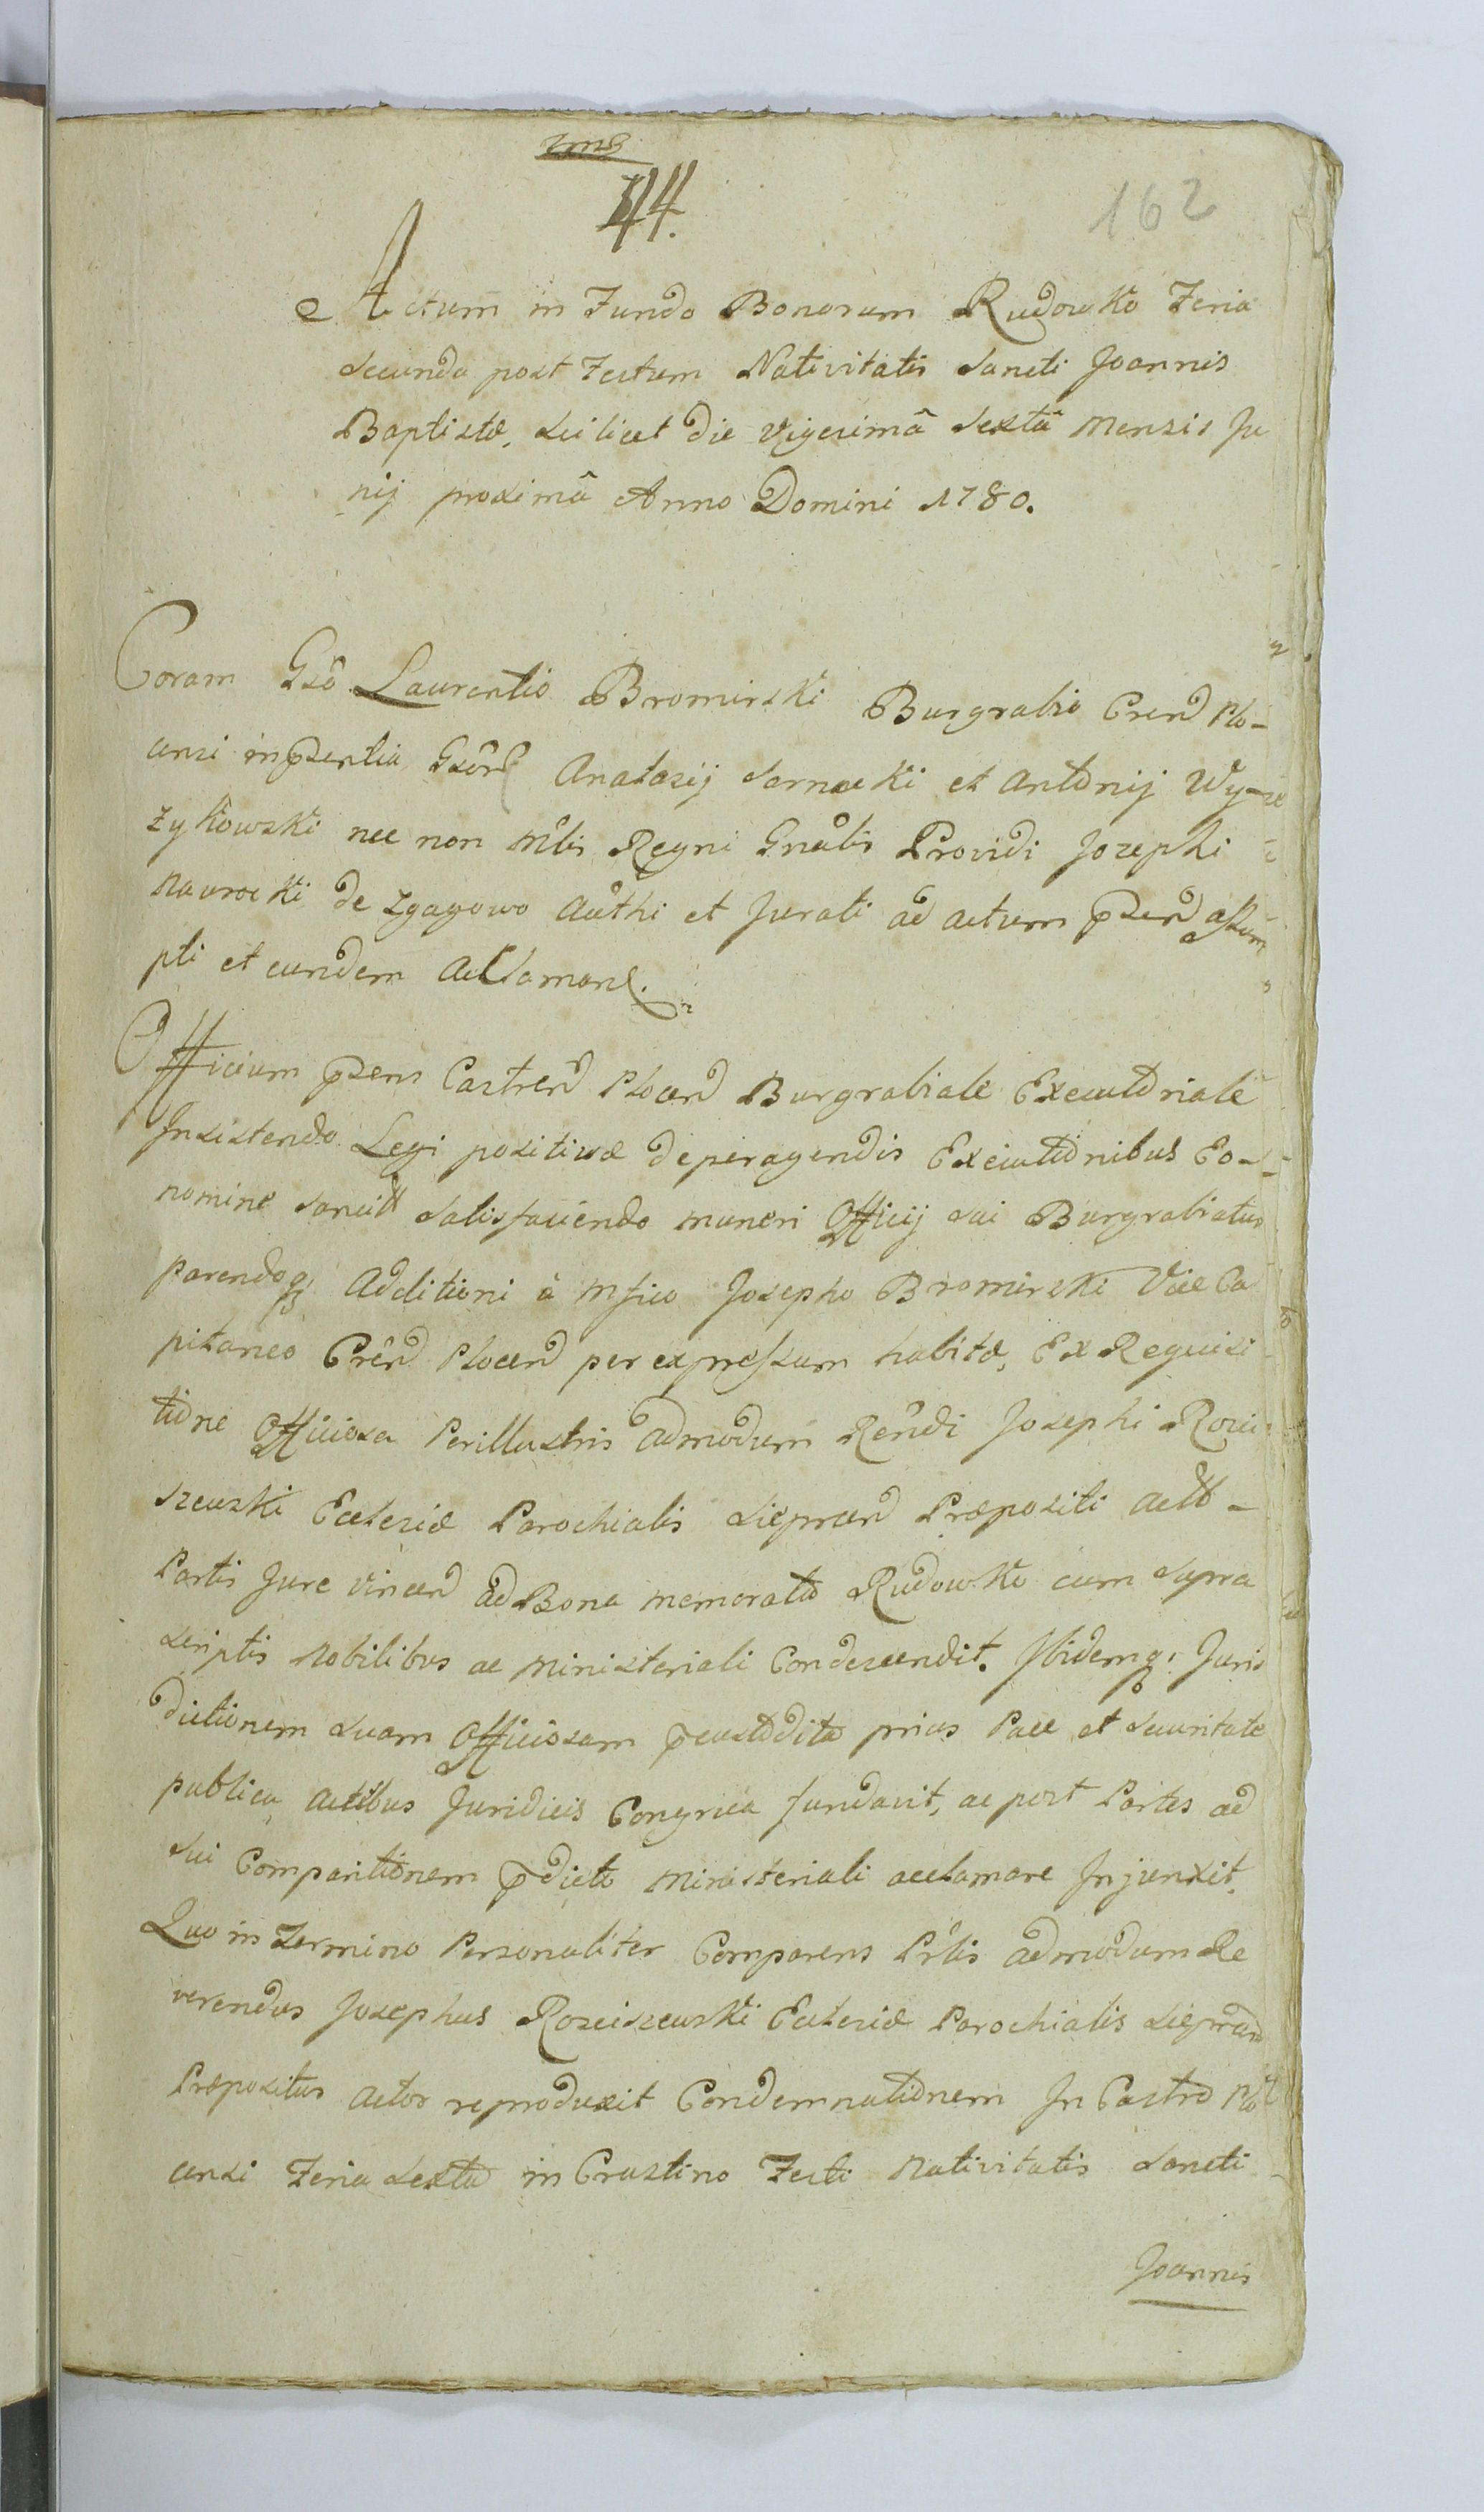 44.
162
Actum in Fundo Bonorum Rudowko Feria
Secunda post Festum Nativitatis Sancti Joannis
Baptistæ, scilicet die Vigesimâ Sextâ Mensis Ju
nij proximâ Anno Domini 1780.
Coram Gsô Laurentio Bromirski Burgrabio Cren Plo-
censi in pzentia Gsôr Anatasij Sarnacki et Antonij Wy-
zykowski nec non Mlis Regni Gnâlis Providi Josephi
Nawrocki de Zgagowo Authi et Jurati ad actum pzen assum
pti et eundem acclaman.
Officium pzens Castren Plocen Burgrabiale Executoriale
Insistendo Legi positivæ de peragendis Executionibus Eo-
nomine sancitt satisfaciendo muneri Officij sui Burgrabiatus
parendoq; Additioni à Mfico Josepho Bromirski Vice Ca
pitaneo Crên Plocen per expressum habitæ, Ex Requisi
tione Officiosa Perillustris admodum Rêndi Josephi Rosci
szewski Ecclesiæ Parochialis Sieprcen Præpositi Actt-
Partis Jure vincen ad Bona memorata Rudowko cum supra
scriptis Nobilibus ac Ministeriali Condescendit. Ibidemq; Juris
dictionem suam Officiosam pcustodita prius Pace et Securitate
publica actibus Juridicis Congrua fundavit, ac post Partes ad
sui Comparitionem pdicto Ministeriali acclamare Injunxit.
Quo in Termino Personaliter Comparens Prlis admodum Re
verendus Josephus Rosciszewski Ecclesiæ Parochialis Sieprcen
Præpositus Actor reproduxit Condemnationem In Castro Plo
censi Feria Sexta in Crastino Festi Nativitatis Sancti
Joannis